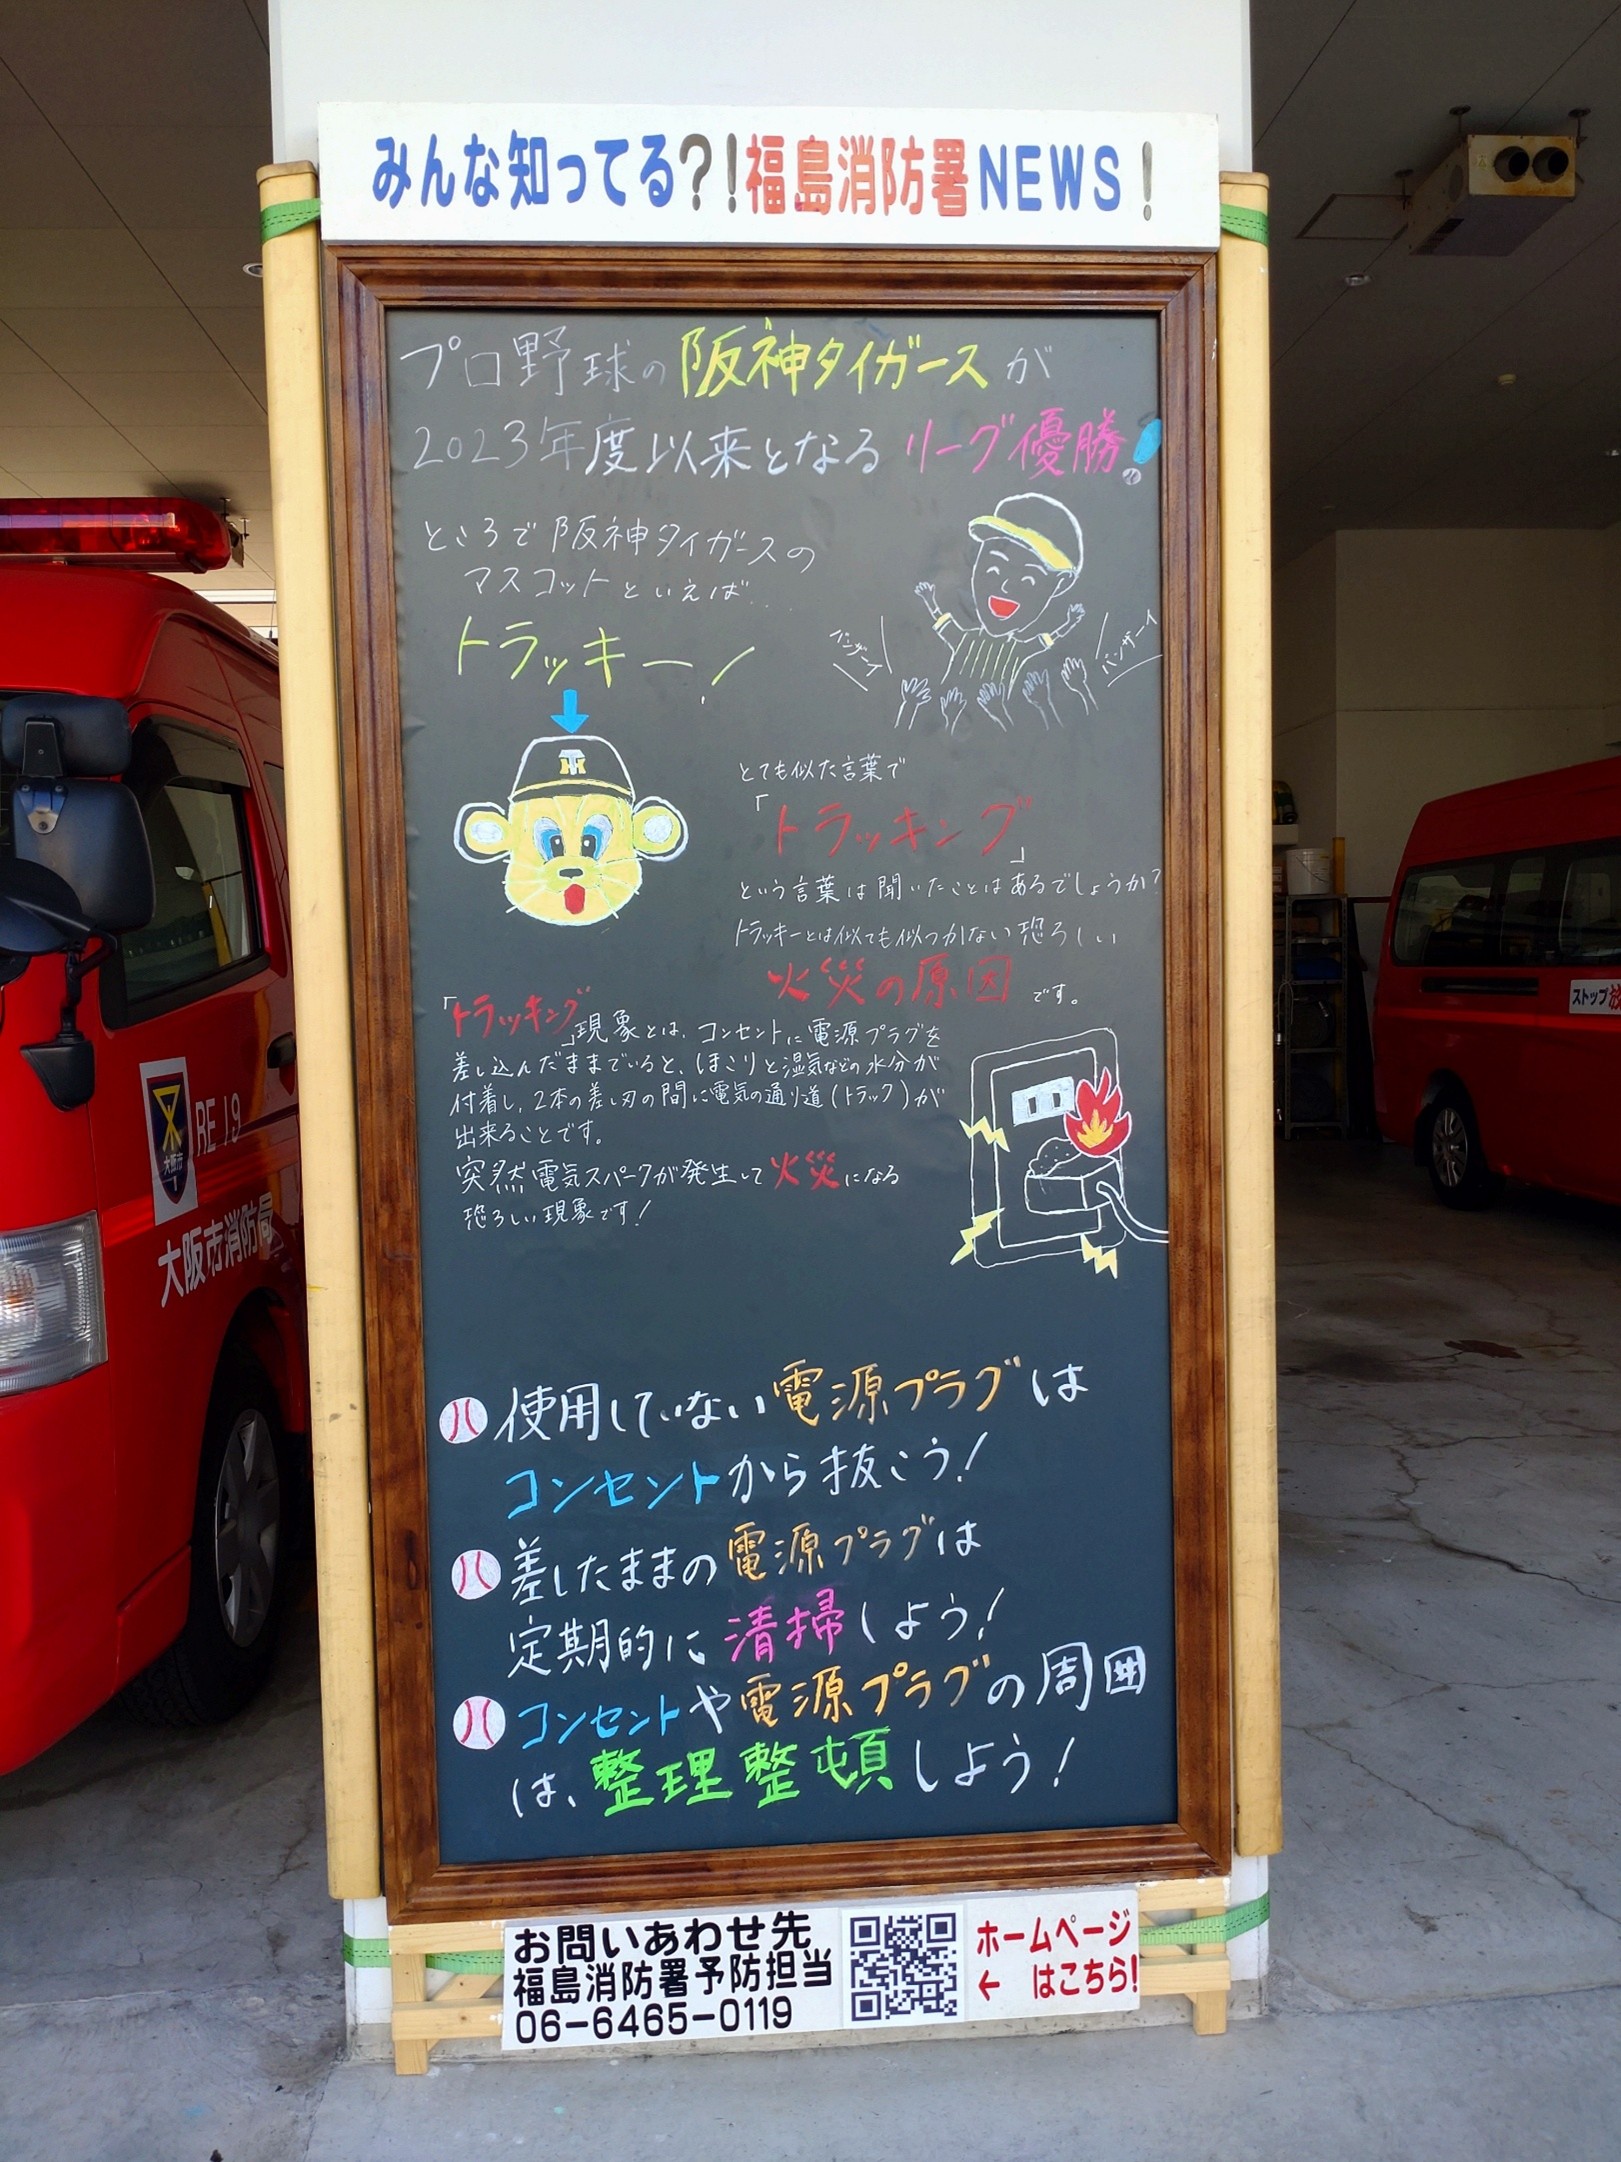 みんな知ってる?!福島消防署NEWS!
プロ野球の阪神タイガースが
2023年度以来となるリーグ優勝!
ところで阪神タイガースの
マスコットといえば...
トラッキー!
バンザーイ
バンザーイ
とても似た言葉で
「トラッキング」
という言葉は聞いたことはあるでしょうか?
トラッキーとは似ても似つかない恐ろしい
火災の原因です。
「トラッキング」現象とは、コンセントに電源プラグを
差し込んだままでいると、ほこりと湿気などの水分が
付着し、2本の差し刃の間に電気の通り道(トラック)が
出来ることです。
突然電気スパークが発生して火災になる
恐ろしい現象です!
使用していない電源プラグは
コンセントから抜こう!
差したままの電源プラグは
定期的に清掃しよう!
コンセントや電源プラグの周囲
は、整理整頓しよう!
お問いあわせ先
福島消防署予防担当
06-6465-0119
ホームページ
← はこちら!
RE19
大阪市
大阪市消防局
ストップ放